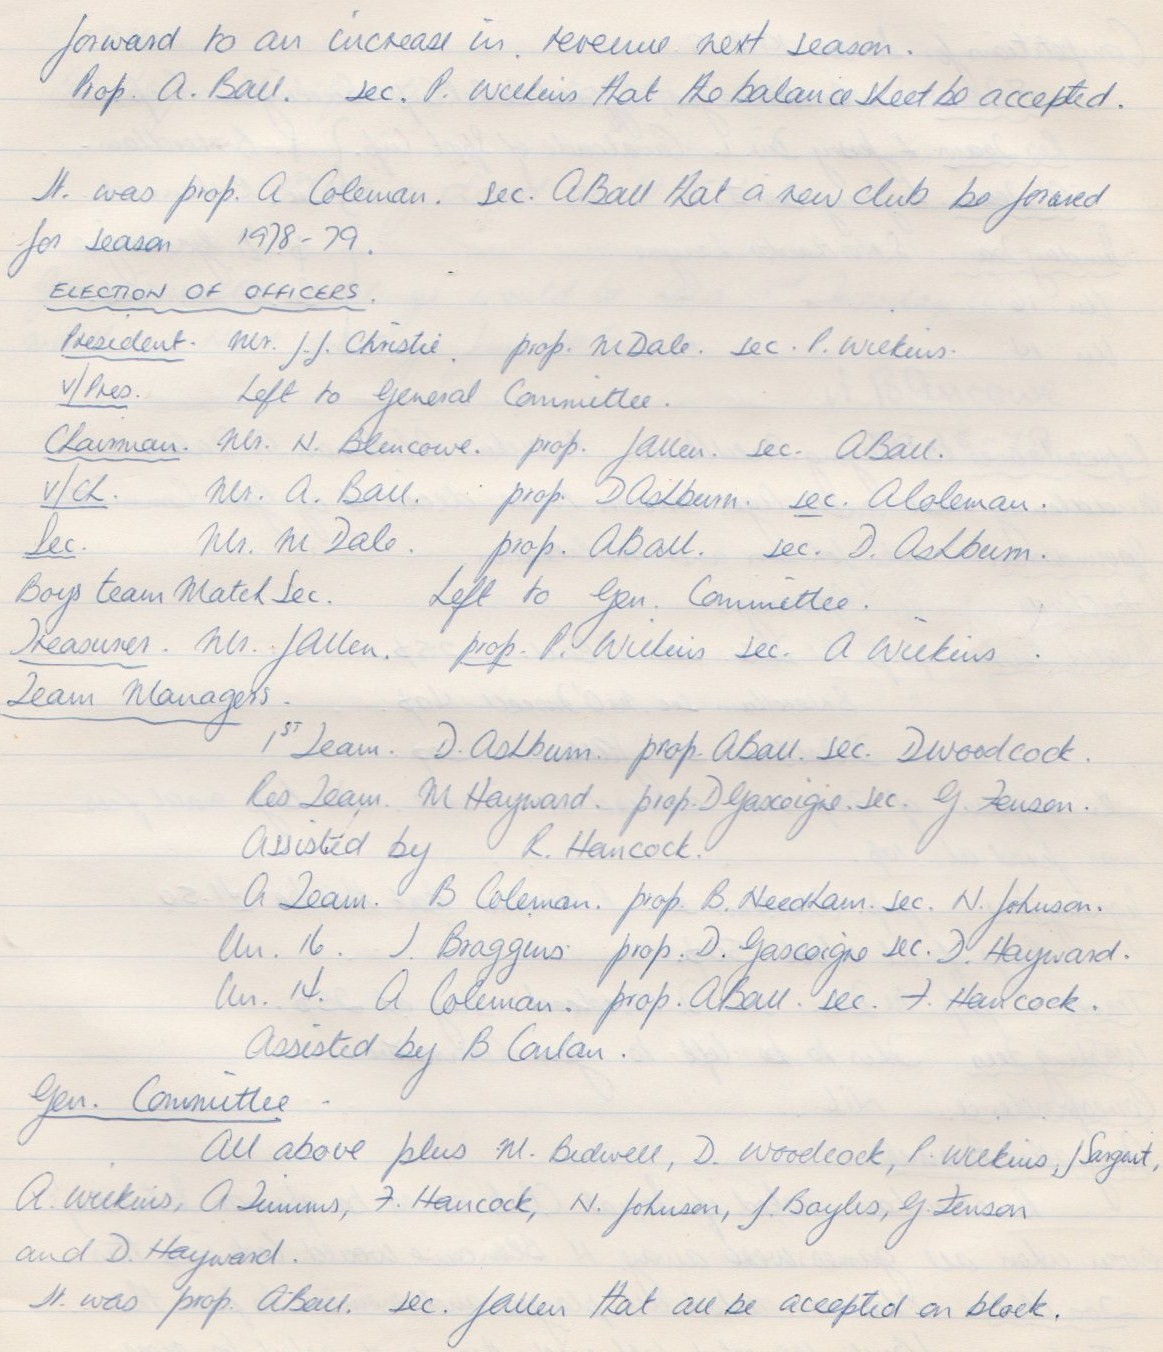 forward to an increase in revenue next season.
Prop. A. Ball. sec. P. Wilkins that the balance sheet be accepted.
It. was prop. A Coleman. sec. A Ball that a new club be formed
for season 1978-79.
ELECTION OF OFFICERS.
President. Mr. J.J. Christie. prop. M Dale. sec. P. Wilkins.
V/Pres. Left to General Committee.
Chairman. Mr. N. Blencowe. prop. J Allen. sec. A Ball.
V/Ch. Mr. A. Ball. prop. D Ashburn. sec. A Coleman.
Sec. Mr. M Dale. prop. A Ball. sec. D. Ashburn.
Boys team Match Sec. Left to Gen. Committee.
Treasurer. Mr. J Allen. prop. P. Wilkins sec. A Wilkins.
Team Managers.
1ST Team. D. Ashburn. prop. A Ball. sec. D Woodcock.
Res Team. M Hayward. prop. D Gascoigne. sec. G. Fenson.
Assisted by R. Hancock.
A Team. B Coleman. prop. B. Needham. sec. N. Johnson.
Un. 16. J. Braggins prop. D. Gascoigne sec. D. Hayward.
Un. 14. A Coleman. prop. A Ball. sec. F. Hancock.
Assisted by B Conlan.
Gen. Committee -
All above plus M. Bidwell, D. Woodcock, P. Wilkins, J Sargent,
A. Wilkins, A Timms, F. Hancock, N. Johnson, J. Bayles, G. Fenson
and D. Hayward.
It. was prop. A Ball. sec. J Allen that all be accepted on block.